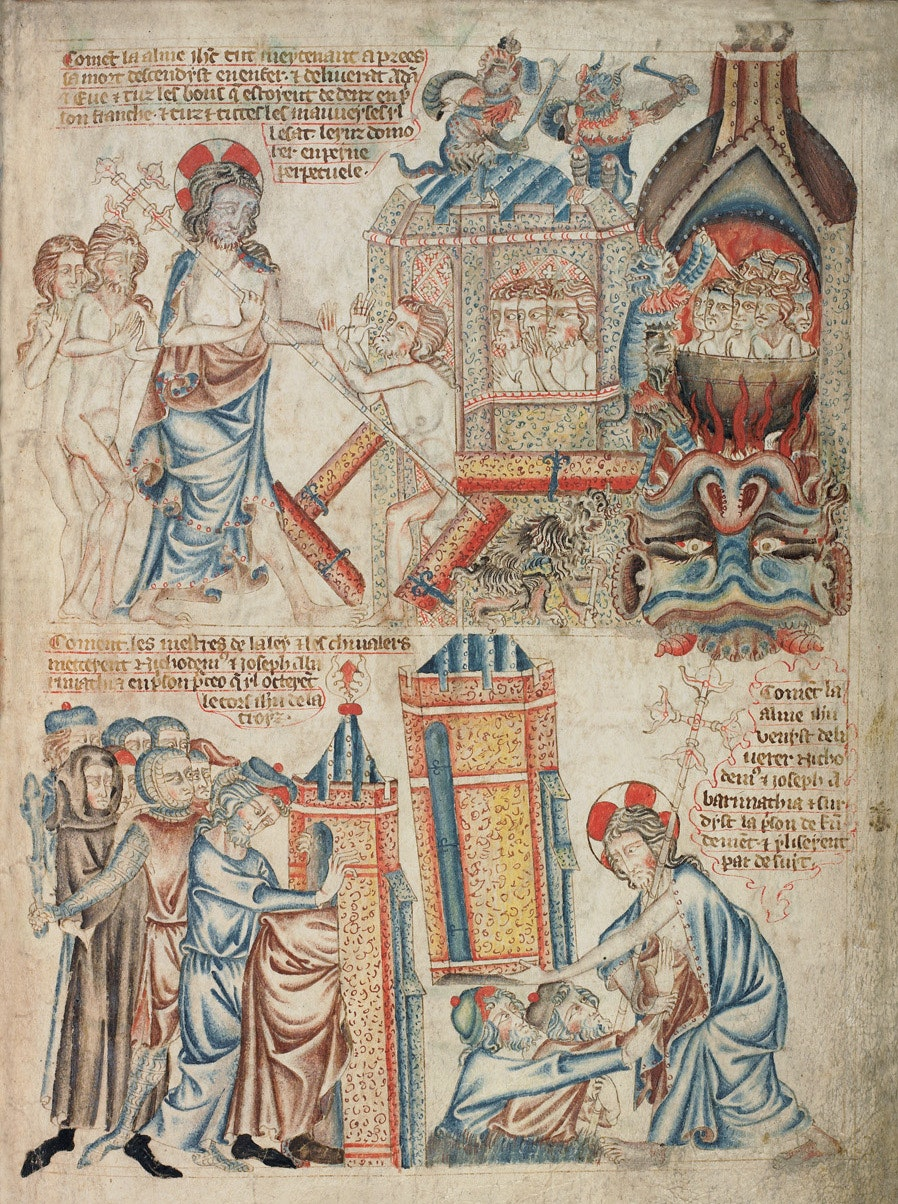 Coment la alme ihc ent meytenant aprees
sa mort descendyst en enfer · & deliverat Adā
& Eve & tuz les bons q̄ estoyent de denz en p̄
son franche · & tuz & tuttes les mauveyses yl
lesat leyuz demo
rer en peyne
perpetuele ·
Coment les mestres de la ley & les chivalers
mettērent Nichodem' & Joseph Ab
rimathia en p̄son p̄ceo q̄ yl otteyet
le cors ih'u de la
croyz ·
Comēt la
alme ihū
venyst deli
verer Nicho
dem' & Joseph A
barimathia & sur
dyst la p̄son de
& yl iseyent
par desuz ·